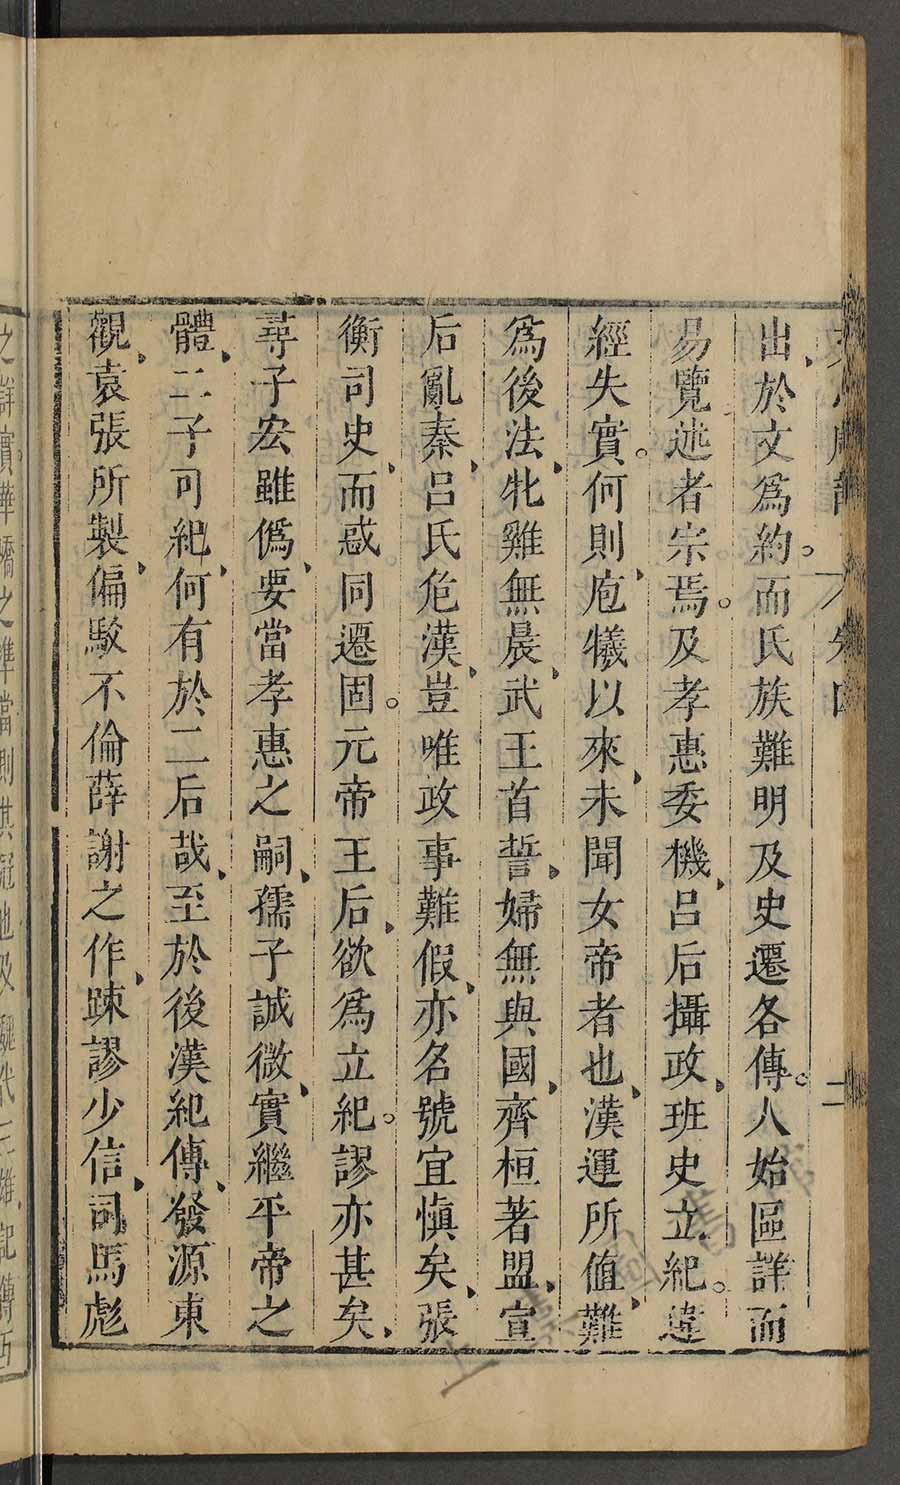 出於文爲約而氏族難明及史遷各傳人始區詳而
易覽述者宗焉及孝惠委機呂后攝政班史立紀違
經失實何則庖犧以來未聞女帝者也漢運所值難
爲後法牝雞無晨武王首誓婦無與國齊桓著盟宣
后亂秦呂氏危漢豈唯政事難假亦名號宜慎矣張
衡司史而惑同遷固元帝王后欲爲立紀謬亦甚矣
尋子宏雖僞要當孝惠之嗣孺子誠微實繼平帝之
體二子可紀何有於二后哉至於後漢紀傳發源東
觀袁張所製偏駁不倫薛謝之作疎謬少信司馬彪